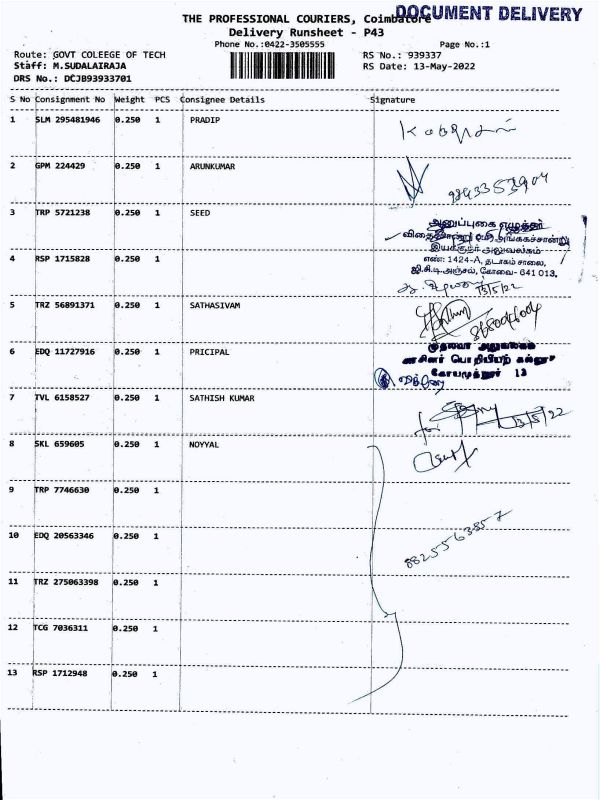 THE PROFESSIONAL COURIERS, Coimbatore
DOCUMENT DELIVERY
Delivery Runsheet - P43
Phone No.:0422-3505555 Page No.:1
Route: GOVT COLEEGE OF TECH RS No.: 939337
Staff: M.SUDALAIRAJA RS Date: 13-May-2022
DRS No.: DCJB93933701
S No Consignment No Weight PCS Consignee Details Signature
1 SLM 295481946 0.250 1 PRADIP
2 GPM 224429 0.250 1 ARUNKUMAR
9843353904
3 TRP 5721238 0.250 1 SEED
அனுப்புகை எழுத்தர்
அங்ககச்சான்று
இயக்குநர் அலுவலகம்
4 RSP 1715828 0.250 1
எண்: 1424-A, தடாகம் சாலை,
ஜி.சி.டி.அஞ்சல், கோவை- 641 013.
13/5/22
5 TRZ 56891371 0.250 1 SATHASIVAM
6 EDQ 11727916 0.250 1 PRICIPAL
முதல்வர் அலுவலகம்
7 TVL 6158527 0.250 1 SATHISH KUMAR
13/5/22
8 SKL 659605 0.250 1 NOYYAL
9 TRP 7746630 0.250 1
10 EDQ 20563346 0.250 1
8825563857
11 TRZ 275063398 0.250 1
12 TCG 7036311 0.250 1
13 RSP 1712948 0.250 1